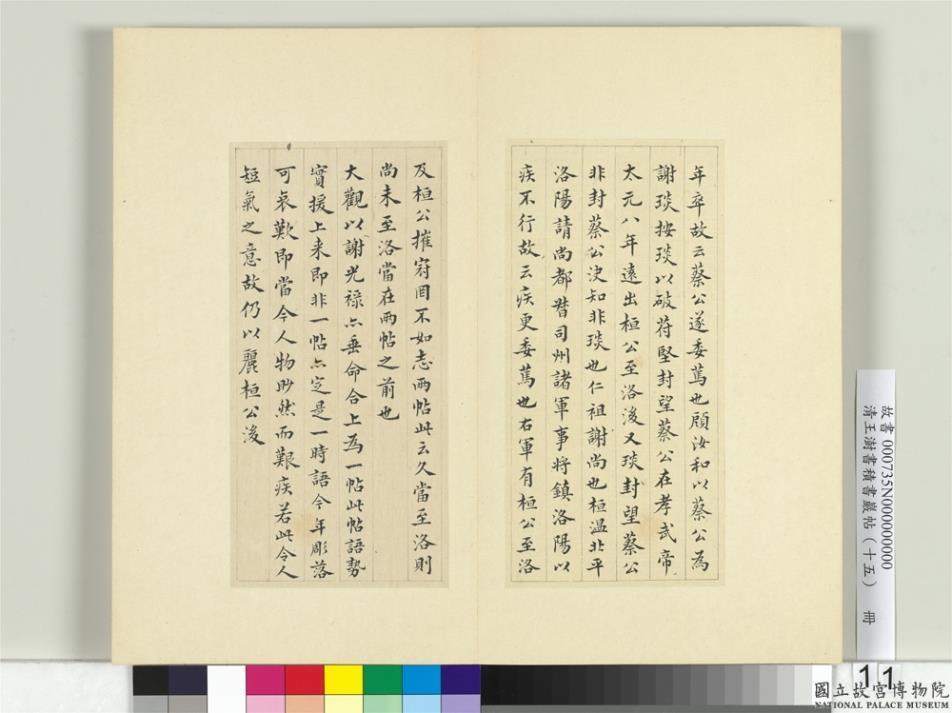 年卒故云蔡公遂委篤也頋汝和以蔡公為
謝琰按琰以破苻堅封望蔡公在孝武帝
太元八年遠出桓公至洛後又琰封望蔡公
非封蔡公决知非琰也仁祖謝尚也桓温北平
洛陽請尚都督司州諸軍事将鎮洛陽以
疾不行故云疾更委篤也右軍有桓公至洛
及桓公摧寇罔不如志兩帖此云久當至洛則
尚未至洛當在兩帖之前也
大觀以謝光禄亦垂命合上為一帖此帖語勢
實援上来即非一帖亦定是一時語今年彫落
可哀歎即當今人物眇然而艱疾若此令人
短氣之意故仍以麗桓公後
故書 000735N000000000
清王澍書積書巖帖（十五） 冊
11
國立故宮博物院
NATIONAL PALACE MUSEUM